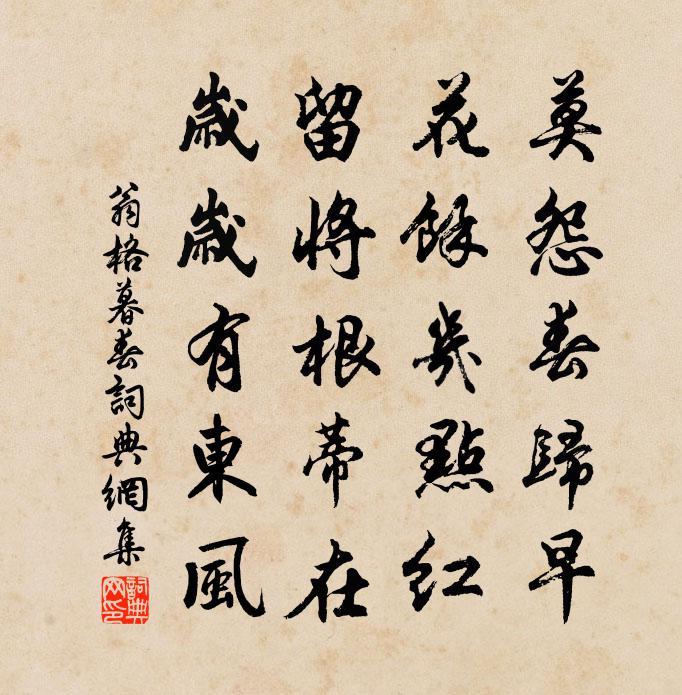 莫怨春歸早
花餘幾點紅
留將根蒂在
歲歲有東風
翁格暮春詞典網集
詞典網印